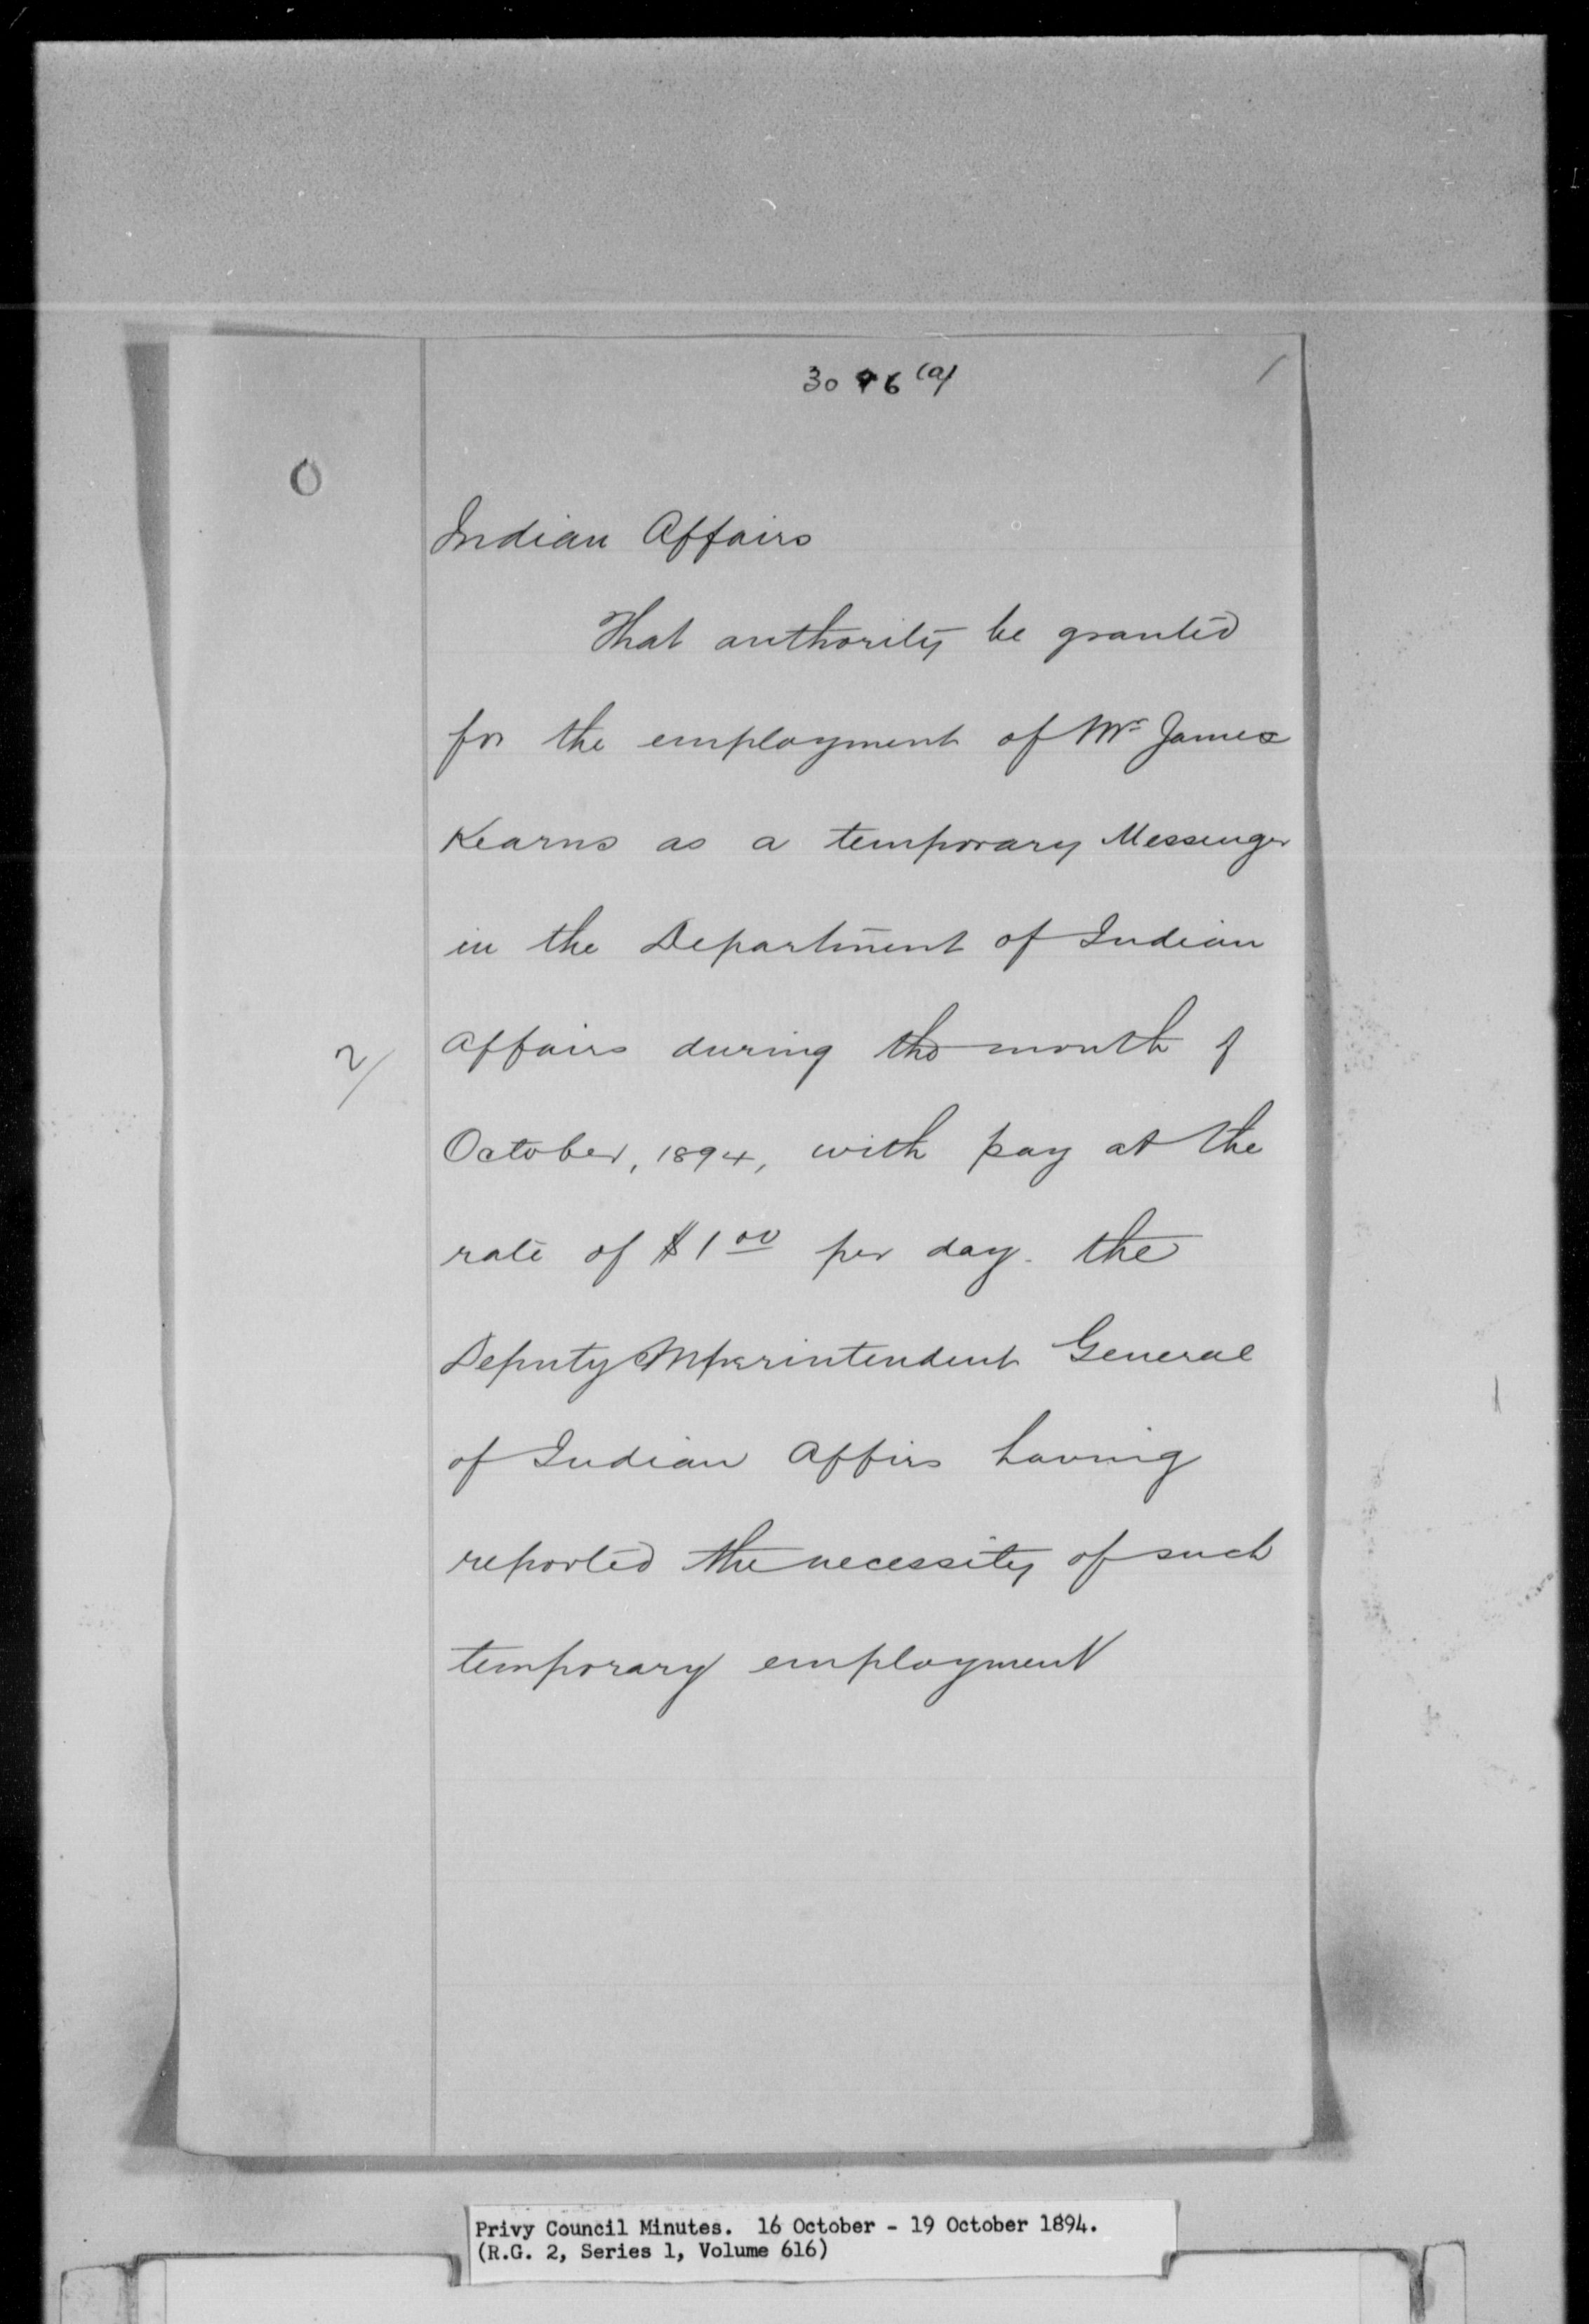 3096 (a)
O
Indian Affairs
That authority be granted
for the employment of Mr James
Kearns as a temporary Messenger
in the Department of Indian
2/
Affairs during the month of
October, 1894, with pay at the
rate of $1 00 per day. the
Deputy Superintendent General
of Indian Affirs having
reported the necessity of such
temporary employment
Privy Council Minutes. 16 October - 19 October 1894.
(R.G. 2, Series 1, Volume 616)